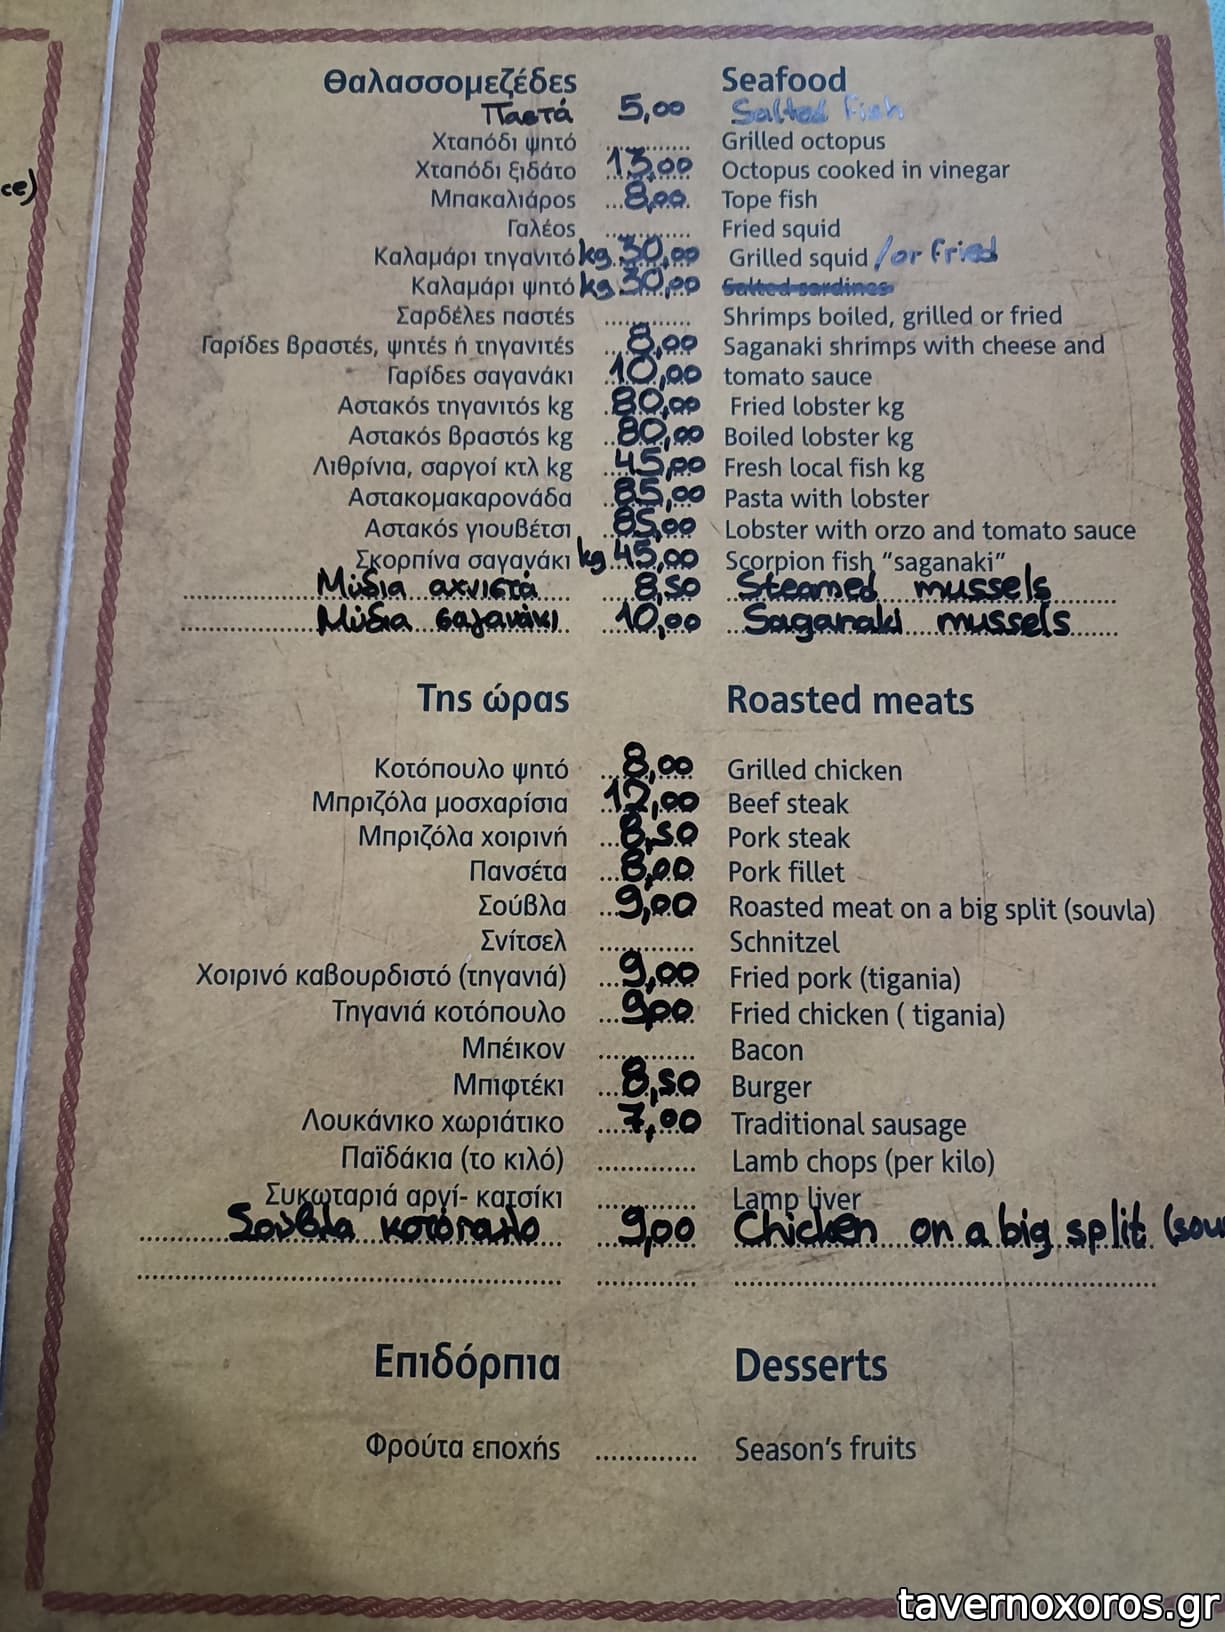 ce)
Θαλασσομεζέδες Seafood
Παστά 5,00 Salted fish
Χταπόδι ψητό ............ Grilled octopus
Χταπόδι ξιδάτο 13,00 Octopus cooked in vinegar
Μπακαλιάρος 8,00 Tope fish
Γαλέος ............ Fried squid
Καλαμάρι τηγανιτό kg 30,00 Grilled squid / or fried
Καλαμάρι ψητό kg 30,00 Salted sardines
Σαρδέλες παστές ............ Shrimps boiled, grilled or fried
Γαρίδες βραστές, ψητές ή τηγανιτές 8,00 Saganaki shrimps with cheese and
Γαρίδες σαγανάκι 10,00 tomato sauce
Αστακός τηγανιτός kg 80,00 Fried lobster kg
Αστακός βραστός kg 80,00 Boiled lobster kg
Λιθρίνια, σαργοί κτλ kg 45,00 Fresh local fish kg
Αστακομακαρονάδα 85,00 Pasta with lobster
Αστακός γιουβέτσι 85,00 Lobster with orzo and tomato sauce
Σκορπίνα σαγανάκι kg 45,00 Scorpion fish “saganaki”
Μύδια αχνιστά 8,50 Steamed mussels
Μύδια σαγανάκι 10,00 Saganaki mussels
Της ώρας Roasted meats
Κοτόπουλο ψητό 8,00 Grilled chicken
Μπριζόλα μοσχαρίσια 12,00 Beef steak
Μπριζόλα χοιρινή 8,50 Pork steak
Πανσέτα 8,00 Pork fillet
Σούβλα 9,00 Roasted meat on a big split (souvla)
Σνίτσελ ............ Schnitzel
Χοιρινό καβουρδιστό (τηγανιά) 9,00 Fried pork (tigania)
Τηγανιά κοτόπουλο 9,00 Fried chicken ( tigania)
Μπέικον ............ Bacon
Μπιφτέκι 8,50 Burger
Λουκάνικο χωριάτικο 7,00 Traditional sausage
Παϊδάκια (το κιλό) ............ Lamb chops (per kilo)
Συκωταριά αργί- κατσίκι ............ Lamp liver
Σούβλα κοτόπουλο 9,00 Chicken on a big split (sou
Επιδόρπια Desserts
Φρούτα εποχής ............ Season’s fruits
tavernoxoros.gr